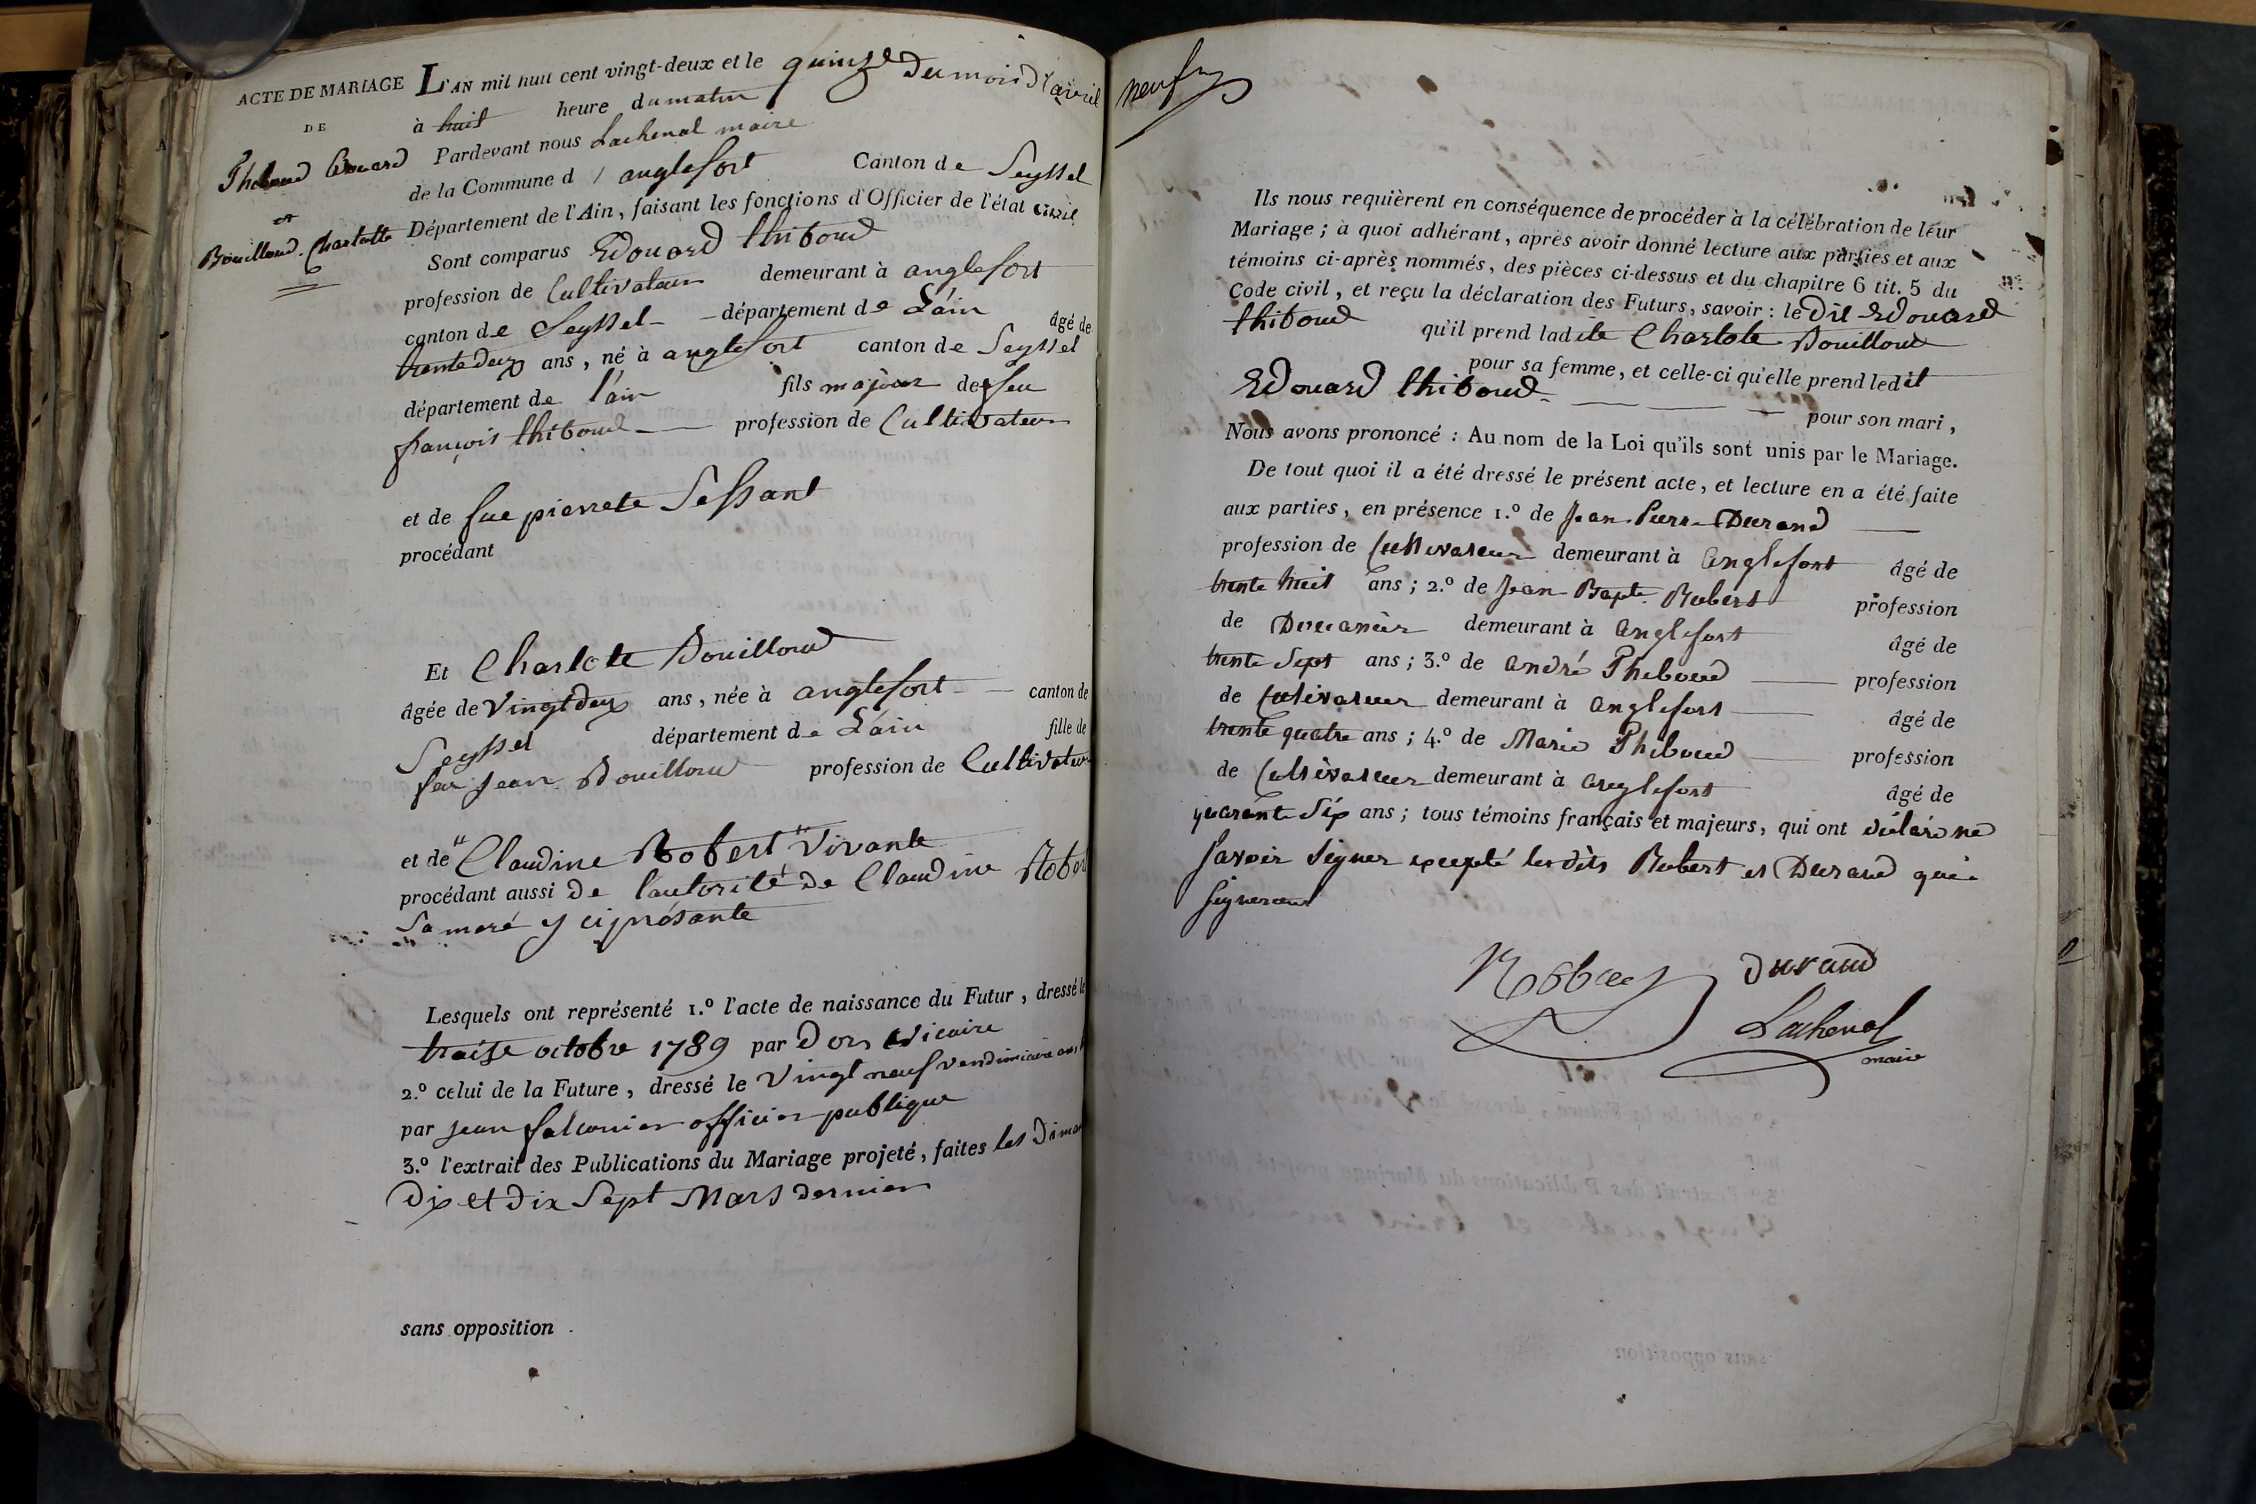 ACTE DE MARIAGE
DE
Thiboud Edouard
et
Bouilloud Charlotte
L'AN mil huit cent vingt-deux et le quinze du mois d'avril
à huit heure du matin
Pardevant nous Lachenal maire
de la Commune d'anglefort Canton de Seyssel
Département de l'Ain, faisant les fonctions d'Officier de l'état civil
Sont comparus Edouard thiboud
profession de Cultivateur demeurant à anglefort
canton de Seyssel département de L'ain âgé de
trente deux ans, né à anglefort canton de Seyssel
département de l'ain fils majeur de feu
françois thiboud profession de Cultivateur
et de fue pierrete Sessant
procédant
Et Charlote Bouilloud
âgée de vingt deux ans, née à anglefort canton de
Seyssel département de L'ain fille de
feu jean Bouilloud profession de Cultivateur
et de Claudine Robert vivante
procédant aussi de l'autorité de Claudine Robert
Sa mere y ciprésante
Lesquels ont représenté 1.° l'acte de naissance du Futur, dressé le
traise octobre 1789 par Dors vicaire
2.° celui de la Future, dressé le vingt neuf vendimiaire an
par jean falconier officier publique
3.° l'extrait des Publications du Mariage projeté, faites les Diman
Dix et dix Sept Mars dernier
sans opposition
neuf
Ils nous requièrent en conséquence de procéder à la célébration de leur
Mariage; à quoi adhérant, après avoir donné lecture aux parties et aux
témoins ci-après nommés, des pièces ci-dessus et du chapitre 6 tit. 5 du
Code civil, et reçu la déclaration des Futurs, savoir: le dit Edouard
thiboud qu'il prend ladite Charlote Bouilloud
pour sa femme, et celle-ci qu'elle prend ledit
Edouard thiboud
pour son mari,
Nous avons prononcé: Au nom de la Loi qu'ils sont unis par le Mariage.
De tout quoi il a été dressé le présent acte, et lecture en a été faite
aux parties, en présence 1.° de Jean Pierre Durand
profession de Cultivateur demeurant à anglefort âgé de
trente huit ans; 2.° de Jean Bapte. Robert profession
de Douanier demeurant à anglefort âgé de
trente Sept ans; 3.° de andré Thiboud profession
de Cultivateur demeurant à anglefort âgé de
trente quatre ans; 4.° de Marie Thiboud profession
de Cultivateur demeurant à anglefort âgé de
quarante Six ans; tous témoins français et majeurs, qui ont déclaré ne
Savoir Signer excepté lesdits Robert et Durand qui
Signeront
Robert durand
Lachenal
maire